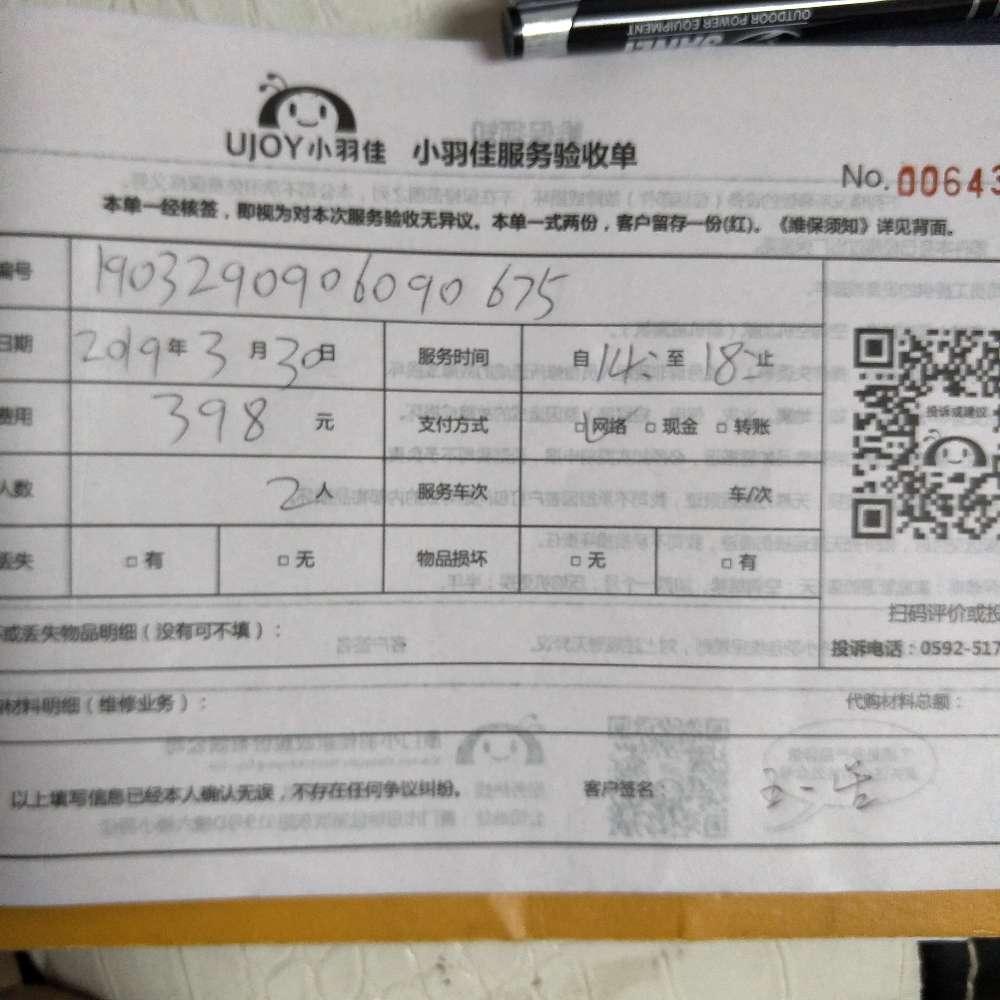 OUTDOOR POWER EQUIPMENT
UJOY小羽佳 小羽佳服务验收单
No. 00643
本单一经核签，即视为对本次服务验收无异议。本单一式两份，客户留存一份(红)。《维保须知》详见背面。
编号 1903290906090675
日期 2019年3月30日 服务时间 自14:至18:止
费用 398 元 支付方式 □网络 □现金 □转账
人数 2人 服务车次 车/次
丢失 □有 □无 物品损坏 □无 □有
投诉或建议
扫码评价或投
或丢失物品明细（没有可不填）：
投诉电话：0592-517
材料明细（维修业务）： 代购材料总额：
以上填写信息已经本人确认无误，不存在任何争议纠纷。 客户签名：